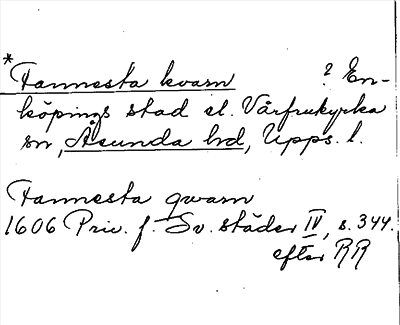 * Fannesta kvarn ? En-
köpings stad el. Vårfrukyrka
sn, Åsunda hd, Upps. l.
Fannesta qwarn
1606 Priv. f. Sv. städer IV, s. 344.
efter RR